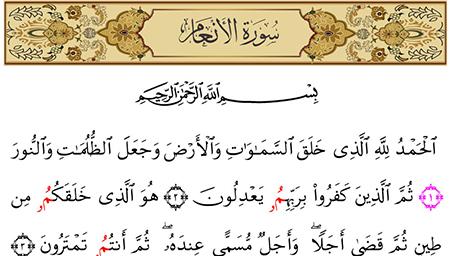 سُورَةُ الأَنْعَامِ
بِسْمِ اللَّهِ الرَّحْمَٰنِ الرَّحِيمِ
ٱلْحَمْدُ لِلَّهِ ٱلَّذِى خَلَقَ ٱلسَّمَـٰوَٰتِ وَٱلْأَرْضَ وَجَعَلَ ٱلظُّلُمَـٰتِ وَٱلنُّورَ
﴿١﴾ ثُمَّ ٱلَّذِينَ كَفَرُوا۟ بِرَبِّهِمُۥ يَعْدِلُونَ ﴿٢﴾ هُوَ ٱلَّذِى خَلَقَكُمُۥ مِن
طِينٍ ثُمَّ قَضَىٰٓ أَجَلًا ۖ وَأَجَلٌ مُّسَمًّى عِندَهُۥ ۖ ثُمَّ أَنتُمُۥ تَمْتَرُونَ ﴿٣﴾